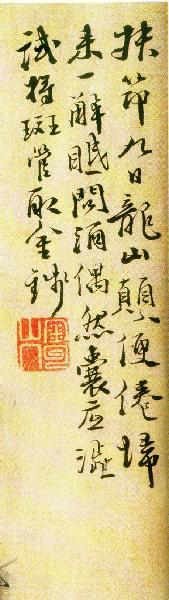 扶筇九日龍山顛便倦歸
來一解眠問酒偶然囊底澁
試將斑管取金錢